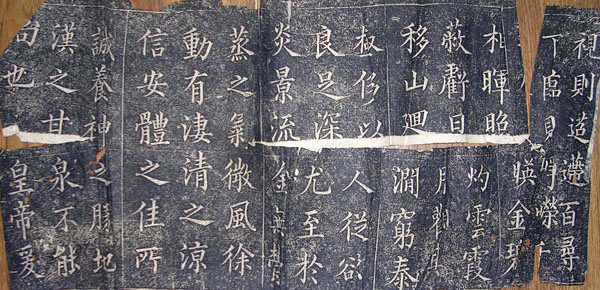 視則迢遰百尋
下臨則崢嶸千
映金碧
相暉照灼雲霞
蔽虧日月觀其
移山廻澗窮泰
極侈以人從欲
良足深尤至於
炎景流金無鬱
蒸之氣微風徐
動有淒清之涼
信安體之佳所
誠養神之勝地
漢之甘泉不能
尚也皇帝爰